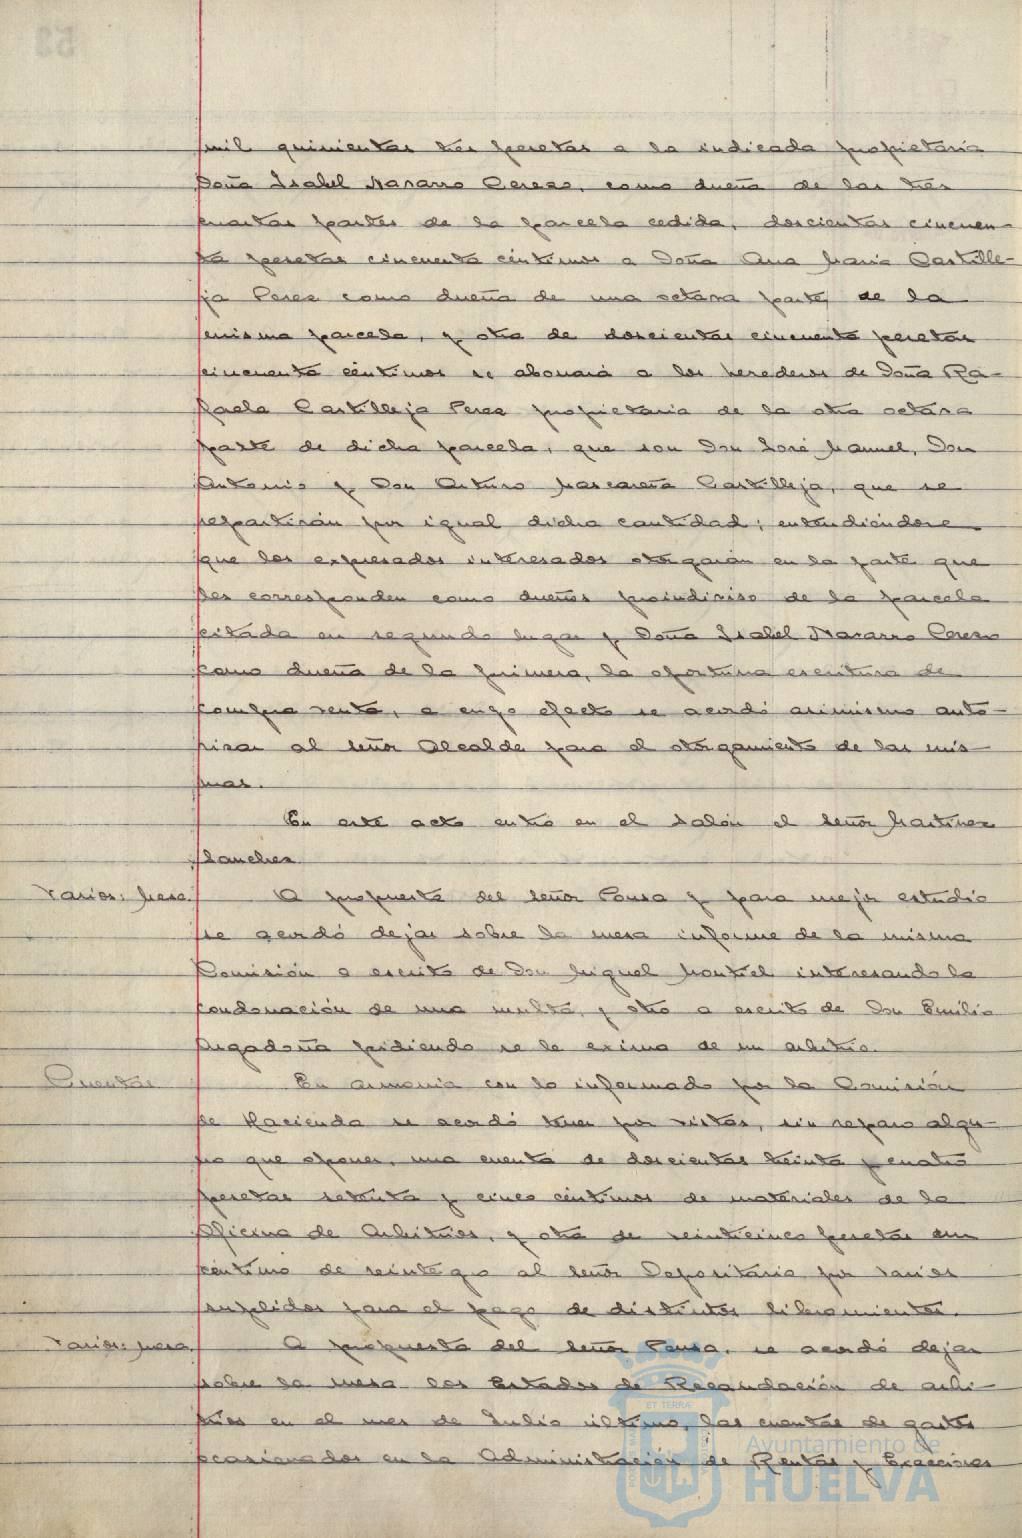 mil quinientas tres pesetas a la indicada propietaria
Doña Isabel Navarro Cerezo, como dueña de las tres
cuartas partes de la parcela cedida, doscientas cincuen-
ta pesetas cincuenta céntimos a Doña Ana María Castille-
ja Perez como dueña de una octava parte de la
misma parcela, y otra de doscientas cincuenta pesetas
cincuenta céntimos se abonará a los herederos de Doña Ra-
faela Castilleja Perez propietaria de la otra octava
parte de dicha parcela, que son Don José Manuel, Don
Antonio y Don Arturo Mascareña Castilleja, que se
repartirán por igual dicha cantidad; entendiéndose
que los expresados interesados otorgarán en la parte que
les corresponden como dueños proindiviso de la parcela
citada en segundo lugar y Doña Isabel Navarro Cerezo
como dueña de la primera, la oportuna escritura de
compra venta, a cuyo efecto se acordó asimismo auto-
rizar al señor Alcalde para el otorgamiento de las mis-
mas.
En este acto entró en el salón el señor Martinez
Sanchez
Varios: Mesa. A propuesta del señor Pousa y para mejor estudio
se acordó dejar sobre la mesa informe de la misma
Comisión a escrito de Don Miguel Montiel interesando la
condonación de una multa, y otro a escrito de Don Emilio
pidiendo se le exima de un arbitrio.
Cuentas En armonia con lo informado por la Comisión
de Hacienda se acordó tener por vistas, sin reparo algu-
no que oponer, una cuenta de doscientas treinta y cuatro
pesetas setenta y cinco céntimos de materiales de la
Oficina de Arbitrios, y otra de veinticinco pesetas un
céntimo de reintegro al señor Depositario por varios
suplidos para el pago de distintos libramientos.
Varios: Mesa. A propuesta del señor Pousa, se acordó dejar
sobre la mesa los Estados de Recaudación de arbi-
trios en el mes de Julio último, las cuentas de gastos
ocasionados en la Administración de Rentas y Exacciones
Ayuntamiento de
HUELVA